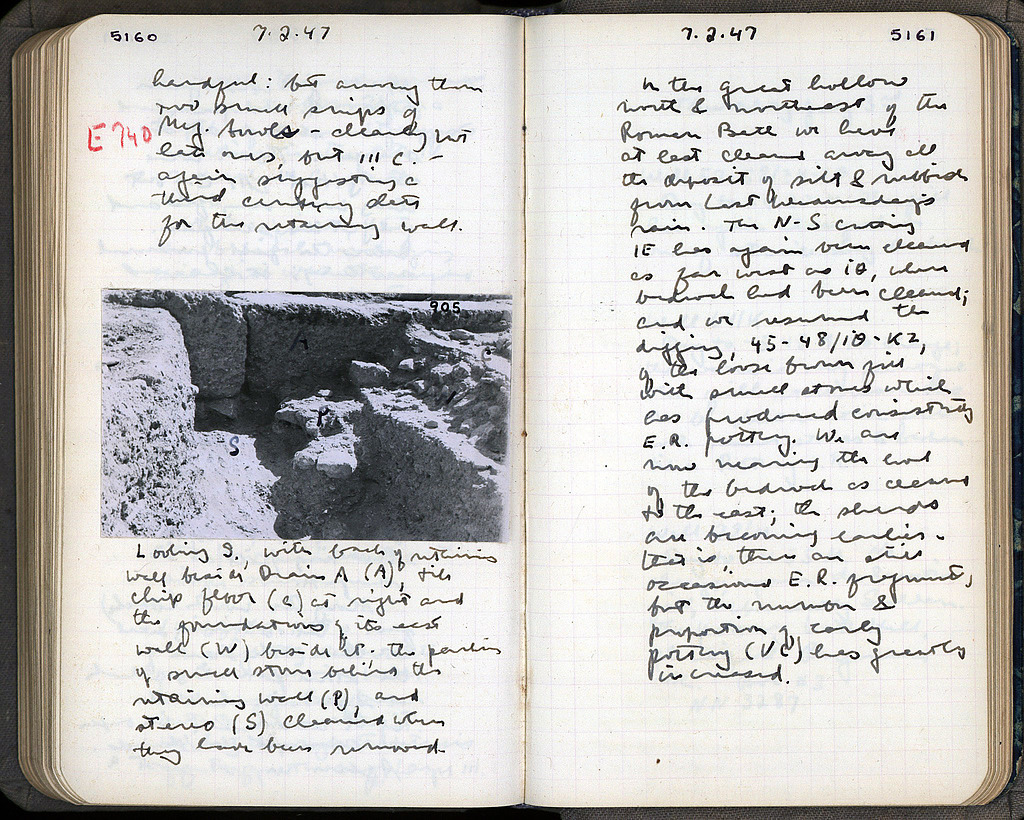 5160
7.2.47
handful: but among them
two small snips of
E 740
Meg. bowls - clearly not
late ones, but III C. -
again suggesting a
third century date
for the retaining wall.
905
A
P
W
S
Looking S., with back of retaining
wall beside Drain A (A), tile
chip floor (C) at right and
the foundations of its east
wall (W) beside it. The packing
of small stones behind the
retaining wall (P), and
stereo (S) cleaned where
they have been removed
7.2.47
5161
In the great hollow
north & northeast of the
Roman Bath we have
at last cleaned away all
the deposit of silt & rubbish
from last Wednesday's
rain. The N-S cutting
IE has again been cleaned
as far west as ΙΘ, where
bedrock had been cleaned;
and we resumed the
digging, 45-48/ΙΘ-ΚΖ,
of the loose brown fill
with small stones which
has produced consistently
E.R. pottery. We are
now nearing the level
of the bedrock as cleaned
to the east; the sherds
are becoming earlier -
that is, there are still
occasional E.R. fragments,
but the number &
proportion of early
pottery (VC) has greatly
increased.